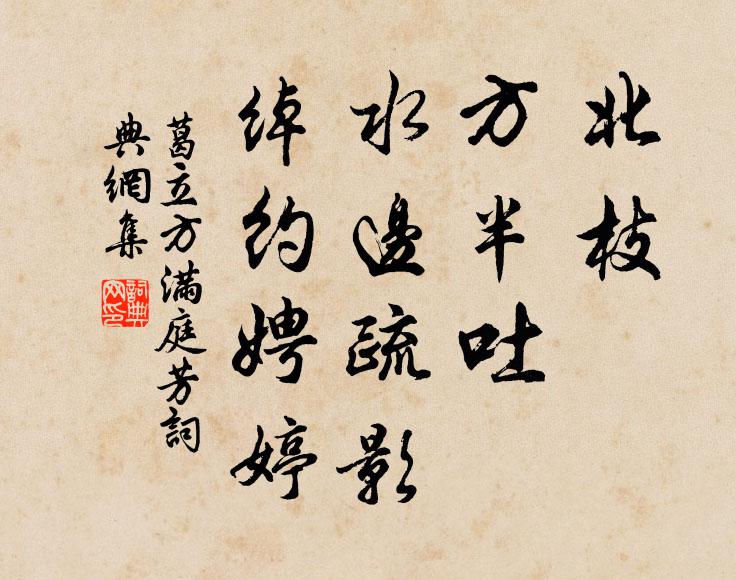 北枝
方半吐
水邊疏影
綽約娉婷
葛立方滿庭芳詞
典網集
詞典網印